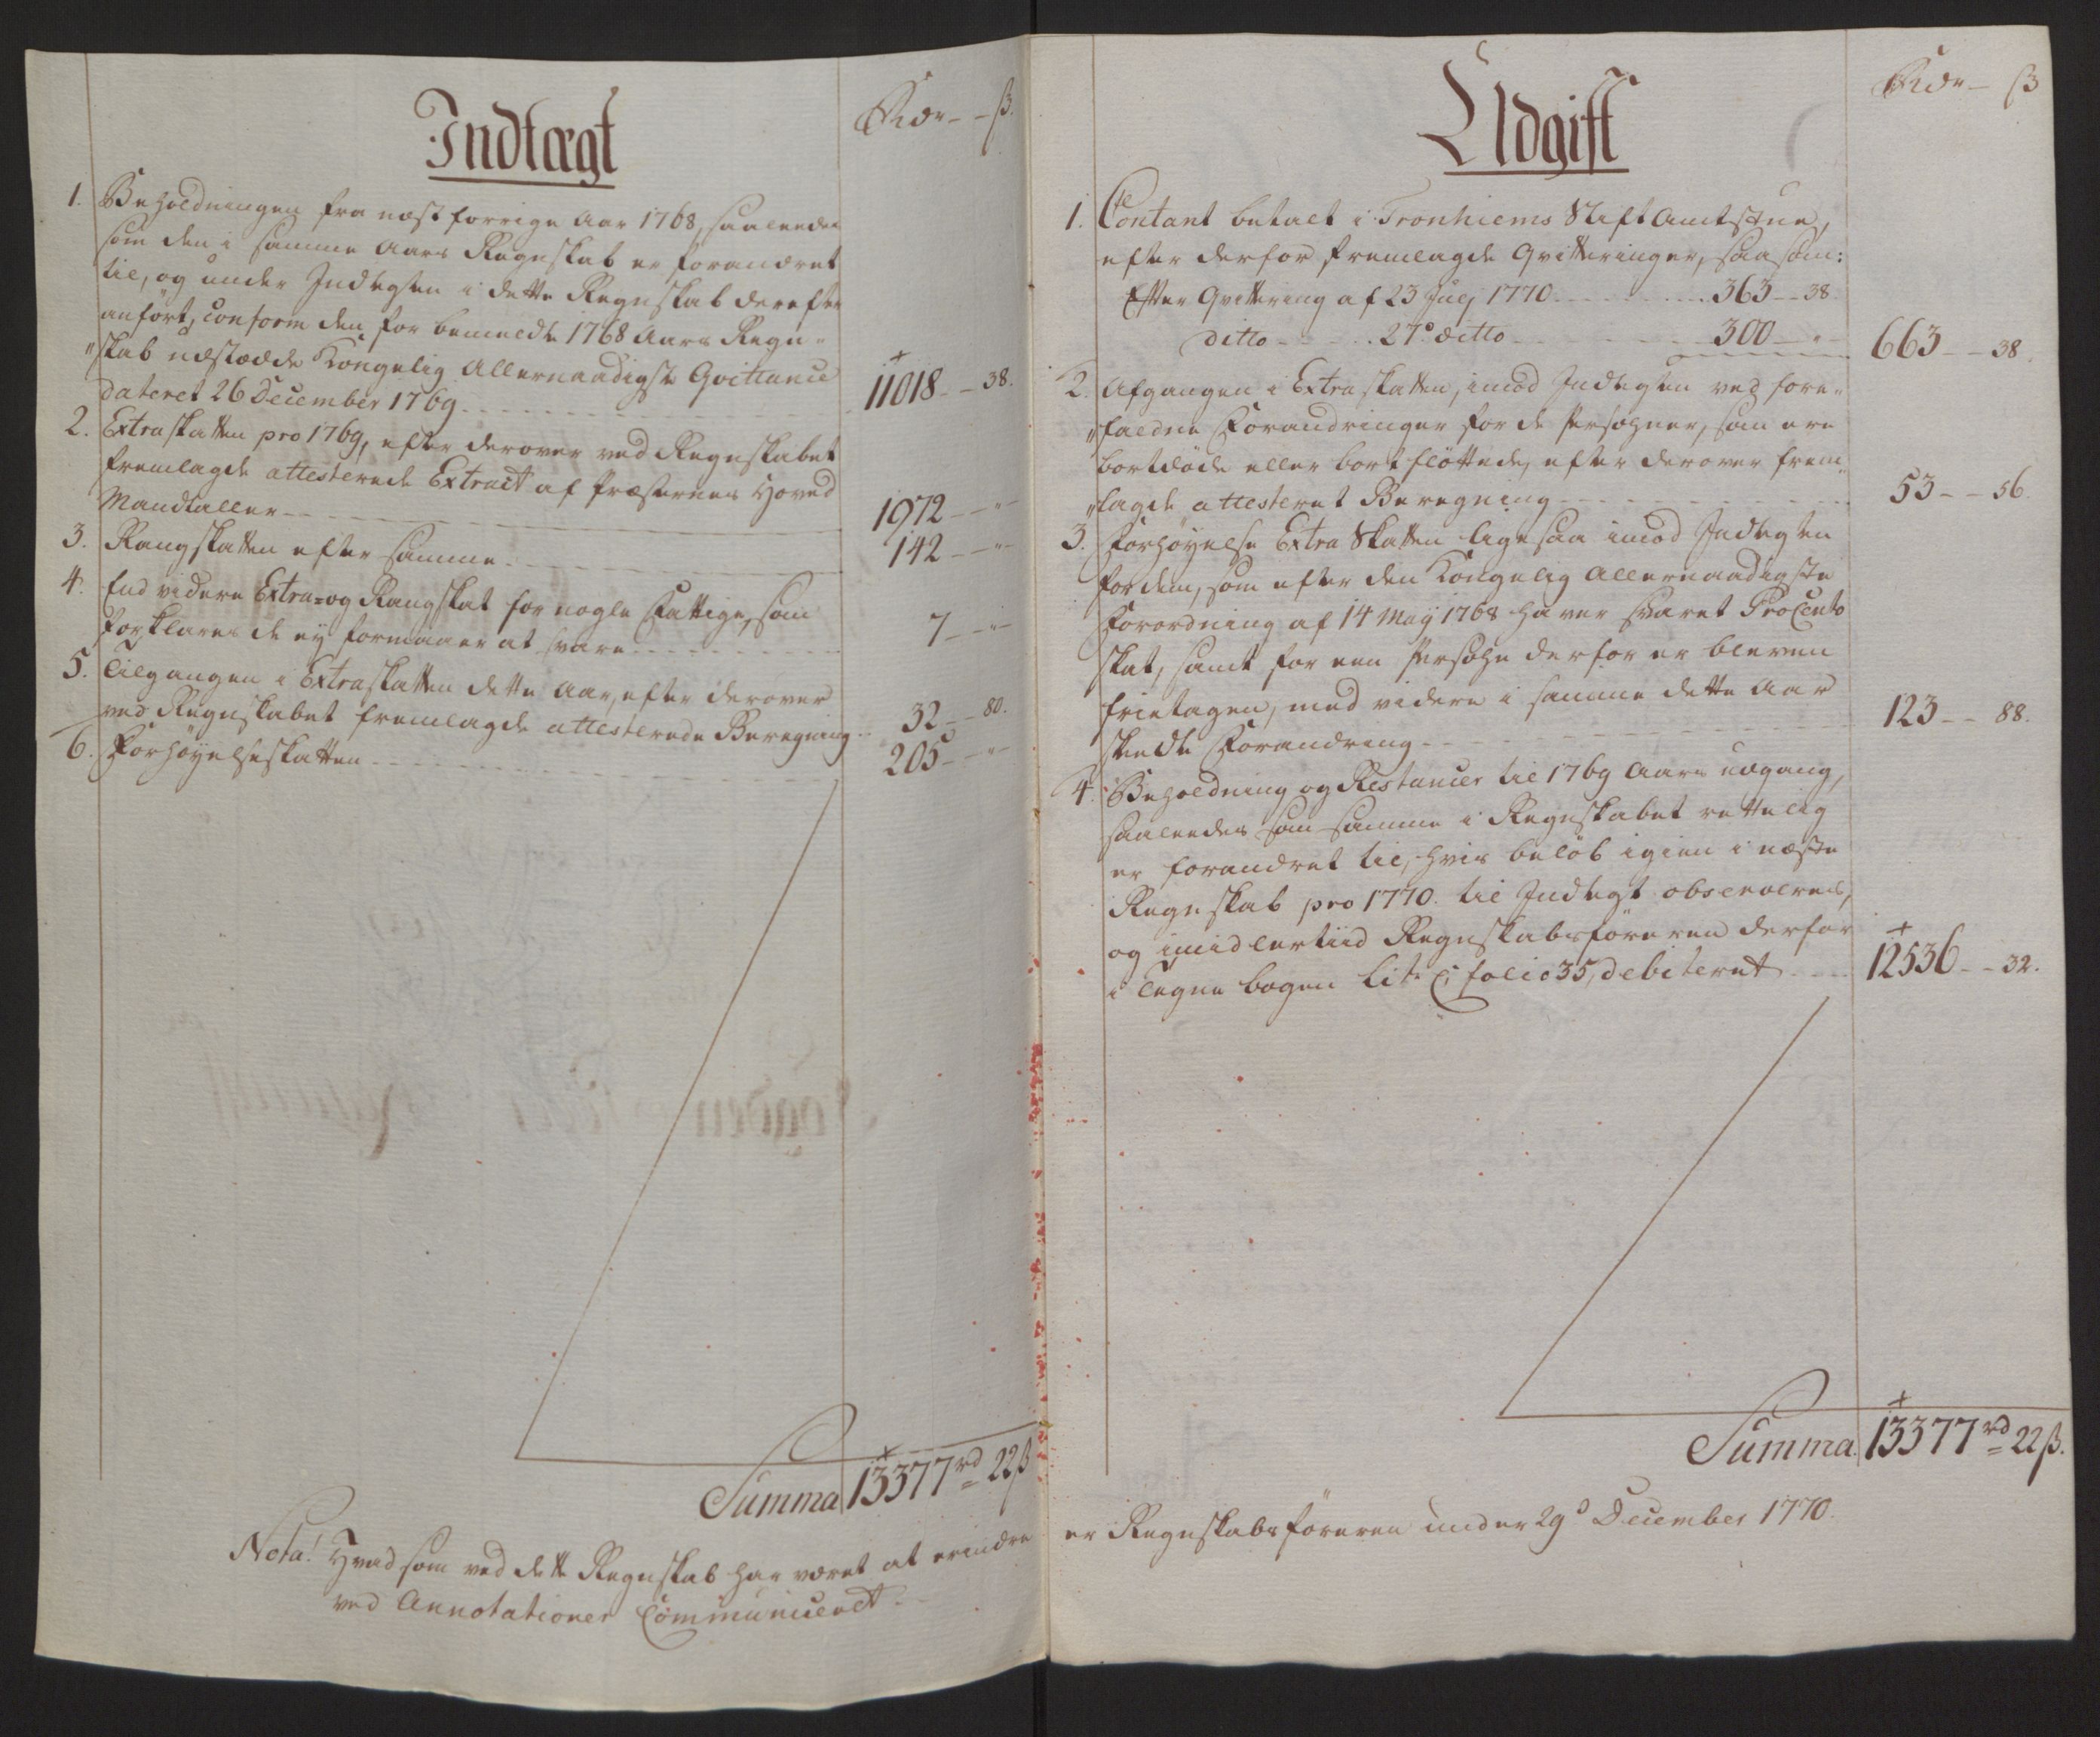 Indtægt
Rdr - - ß.
1. Beholdningen fra næstforrige Aar 1768, saaleedes
som den i samme Aars Regnskab er forandret
til, og under Indtegten i dette Regnskab derefter
anfört, conform den for bemeldte 1768 Aars Regn-
"skab udstædde Kongelig Allernaadigste Qvittance
dateret 26 December 1769 - - - 11018 - - 38.
2. Extraskatten pro 1769, efter derover ved Regnskabet
fremlagde attesterede Extract af Præsternes Hoved
Mandtaller - - - 1972 - - "
3. Rangskatten efter samme - - - 142 - - "
4. End videre Extra- og Rangskat for nogle Fattige, som
forklares de ey formaaer at svare - - - 7 - - "
5. Tilgangen i Extraskatten dette Aar, efter derover
ved Regnskabet fremlagde attesterede Beregning - - 32 - - 80.
6. Forhöyelseskatten - - - 205 - - "
Summa 13377 rd 22 ß
Nota! Hvad som ved dette Regnskab har været at erindre
ved Annotationer Communiceret.
Udgift
Rdr - ß
1. Contant betalt i Tronhiems Stift Amtstue,
efter derfor fremlagde Qvitteringer, saasom:
Efter Qvittering af 23 Julj 1770 - - - 363 - 38.
ditto - - - 27de ditto - - - 300 - " - 663 - - 38.
2. Afgangen i Extraskatten, imod Indtegten ved fore-
"faldne Forandringer for de Persohner, som ere
bortdöde eller bortflöttede, efter derover frem-
"lagde attesteret Beregning - - - 53 - - 56.
3. Forhöyelse Extra Skatten ligesaa imod Indtegten
for dem, som efter den Kongelig Allernaadigste
Forordning af 14 Maÿ 1768 haver svaret ProCento
skat, samt for een Persohn derfor er bleven
frietagen, med videre i samme dette Aar
skeedte Forandring - - - 123 - - 88.
4. Beholdning og Restancer til 1769 Aars udgang,
saaleedes som samme i Regnskabet rettelig
er forandret til, hvis belöb igien i næste
Regnskab pro 1770. til Indtegt observeres,
og imidlertiid Regnskabsföreren derfor
i Tegnebogen Lit. C, folio 35, debiteret - - 12536 - - 32.
Summa. 13377 rd 22 ß.
er Regnskabsföreren under 29de December 1770.